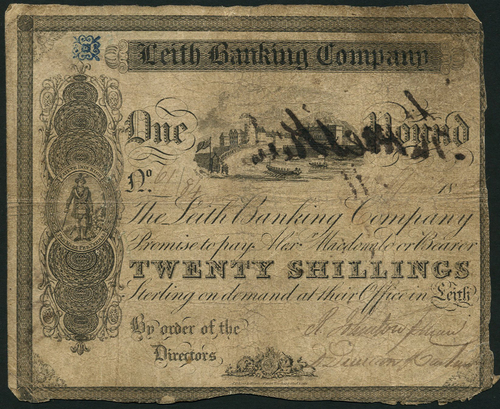 Leith Banking Company
One Pound
No. 61/84 18
The Leith Banking Company
Promise to pay Alexr. Macdonald or Bearer
TWENTY SHILLINGS
Sterling on demand at their Office in Leith
By order of the
Directors